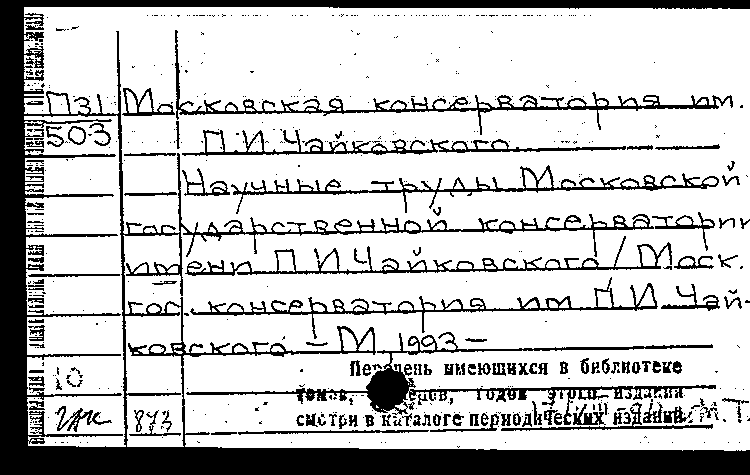 П31 Московская консерватория им.
503 П.И.Чайковского.
Научные труды Московской
государственной консерватории
имени П.И.Чайковского / Моск.
гос. консерватория им П.И.Чай-
ковского. – М, 1993 –
10 Перечень имеющихся в библиотеке
томов, номеров, годов этого издания
873 смотри в каталоге периодических изданий. М.Т.